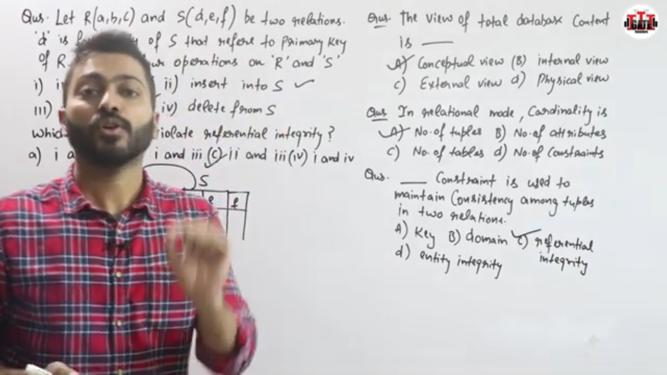 Ques. Let R(a,b,c) and S(d,e,f) be two relations.
'd' is f y of S that refers to Primary key
of R. ur operations on 'R' and 'S'
i) i ii) insert into S ✓
iii) iv) delete from S
Which iolate referential integrity?
a) i a i and iii (c) ii and iii (iv) i and iv
S
e f
Ques. The view of total database Content
is ___
A) Conceptual view (B) internal view
C) External view d) Physical view
Ques In relational mode, Cardinality is
A) No. of tuples B) No. of attributes
C) No. of tables d) No. of Constraints
Ques. ___ Constraint is used to
maintain Consistency among tuples
in two relations.
A) Key B) domain C) referential
integrity
d) entity integrity